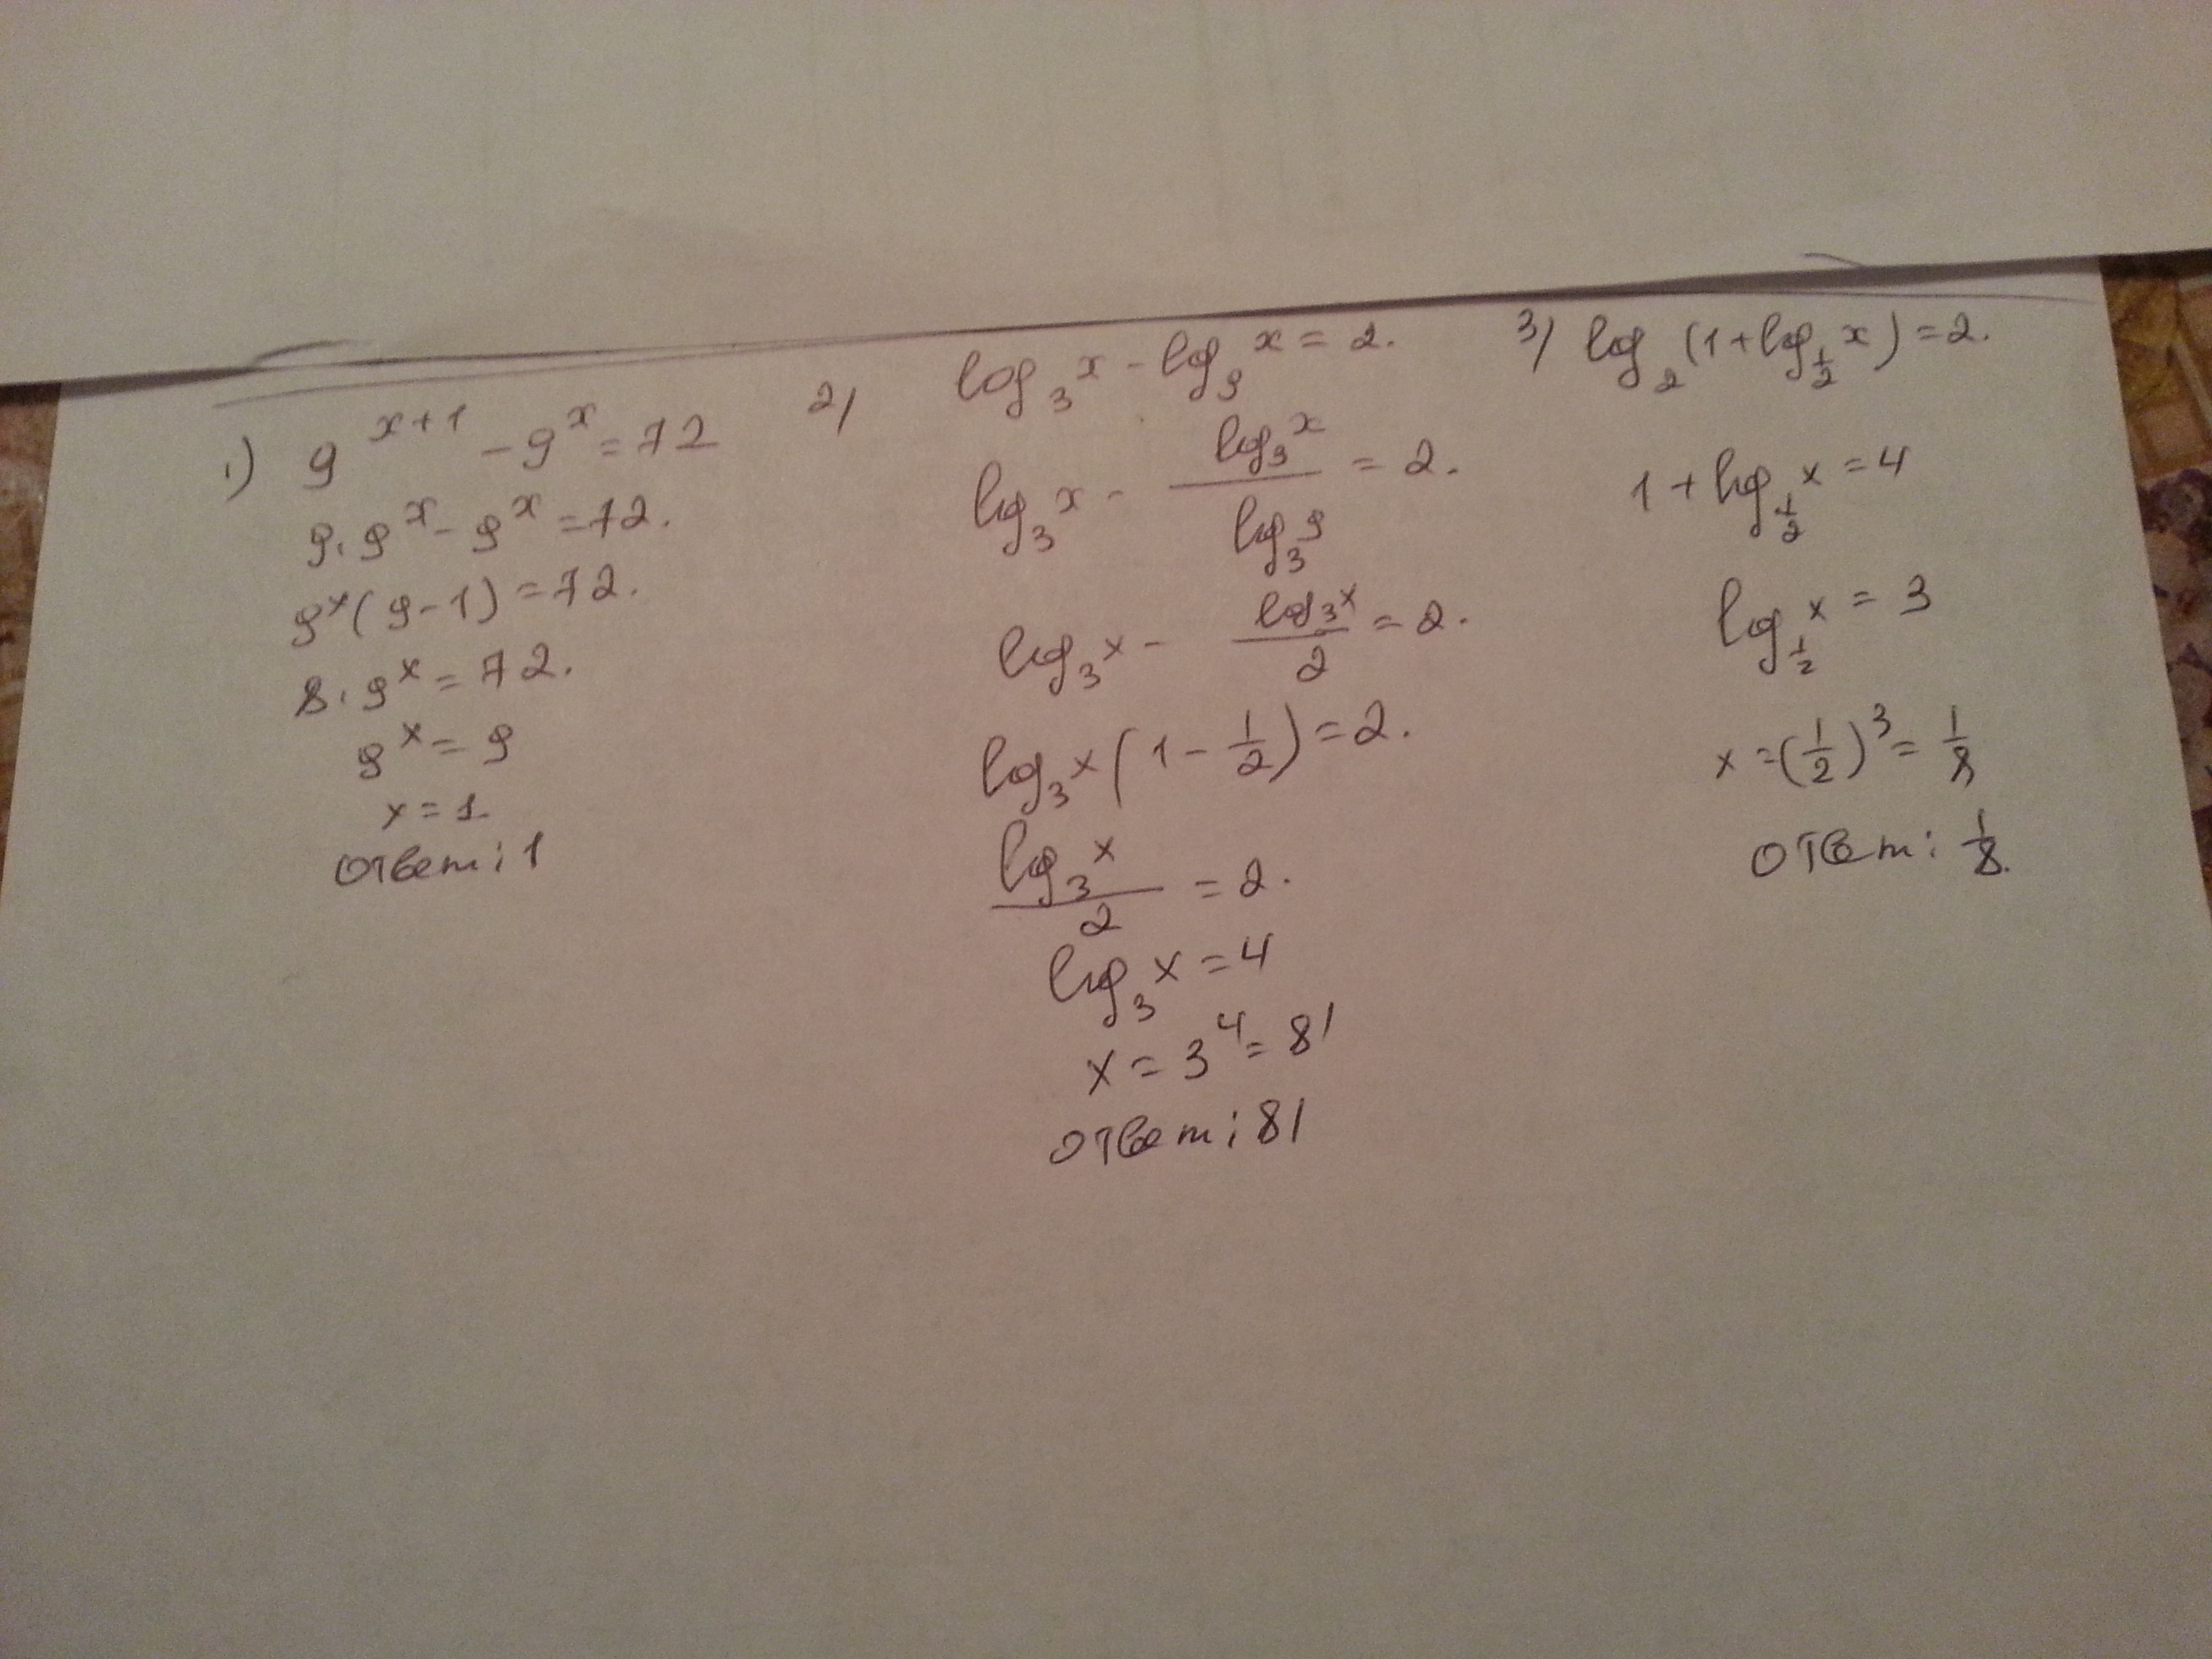 1) 9^{x+1} - 9^x = 72
9·9^x - 9^x = 72.
9^x(9-1) = 72.
8·9^x = 72.
9^x = 9
x = 1
ответ: 1
2) log_3 x - log_9 x = 2.
log_3 x - \frac{log_3 x}{log_3 9} = 2.
log_3 x - \frac{log_3 x}{2} = 2.
log_3 x (1 - \frac{1}{2}) = 2.
\frac{log_3 x}{2} = 2.
log_3 x = 4
x = 3^4 = 81
ответ: 81
3) log_2 (1 + log_{\frac{1}{2}} x) = 2.
1 + log_{\frac{1}{2}} x = 4
log_{\frac{1}{2}} x = 3
x = (\frac{1}{2})^3 = \frac{1}{8}
ответ: \frac{1}{8}.